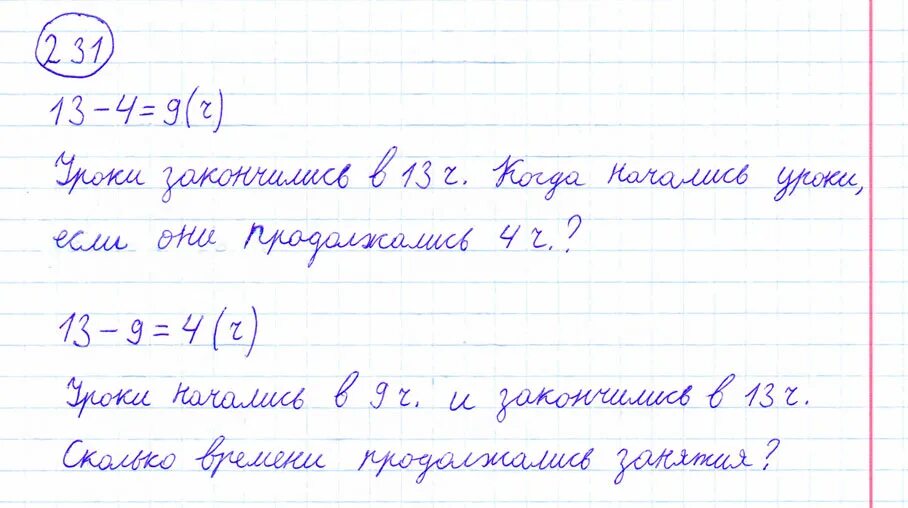 231
13-4=9(ч)
Уроки закончились в 13ч. Когда начались уроки,
если они продолжались 4ч.?
13-9=4(ч)
Уроки начались в 9ч. и закончились в 13ч.
Сколько времени продолжались занятия?